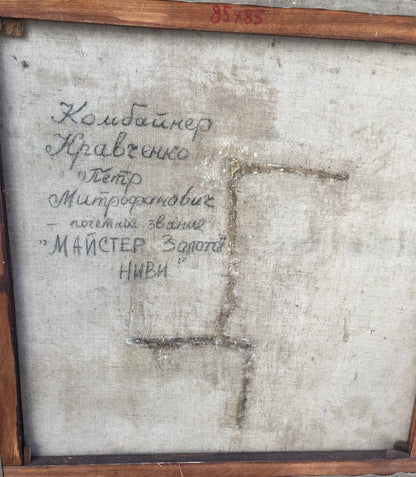 85х85
Комбайнер
Кравченко
Петр
Митрофанович
– почетное звание
"МАЙСТЕР Золотої
НИВИ"